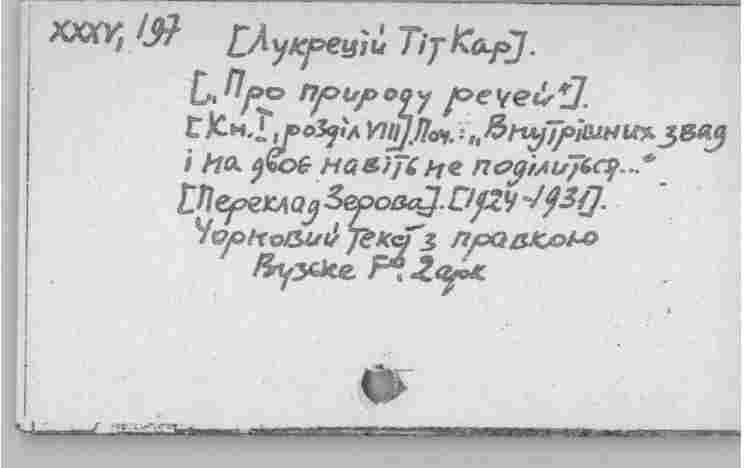 XXXV, 197 [Лукрецій Тіт Кар].
[„Про природу речей“].
[Кн. I, розділ VIII]. Поч.: „Внутрішних звад
і на двоє навіть не поділиться...“
[Переклад Зерова]. [1924-1931].
Чорновий текст з правкою
Вузьке F°. 2 арк